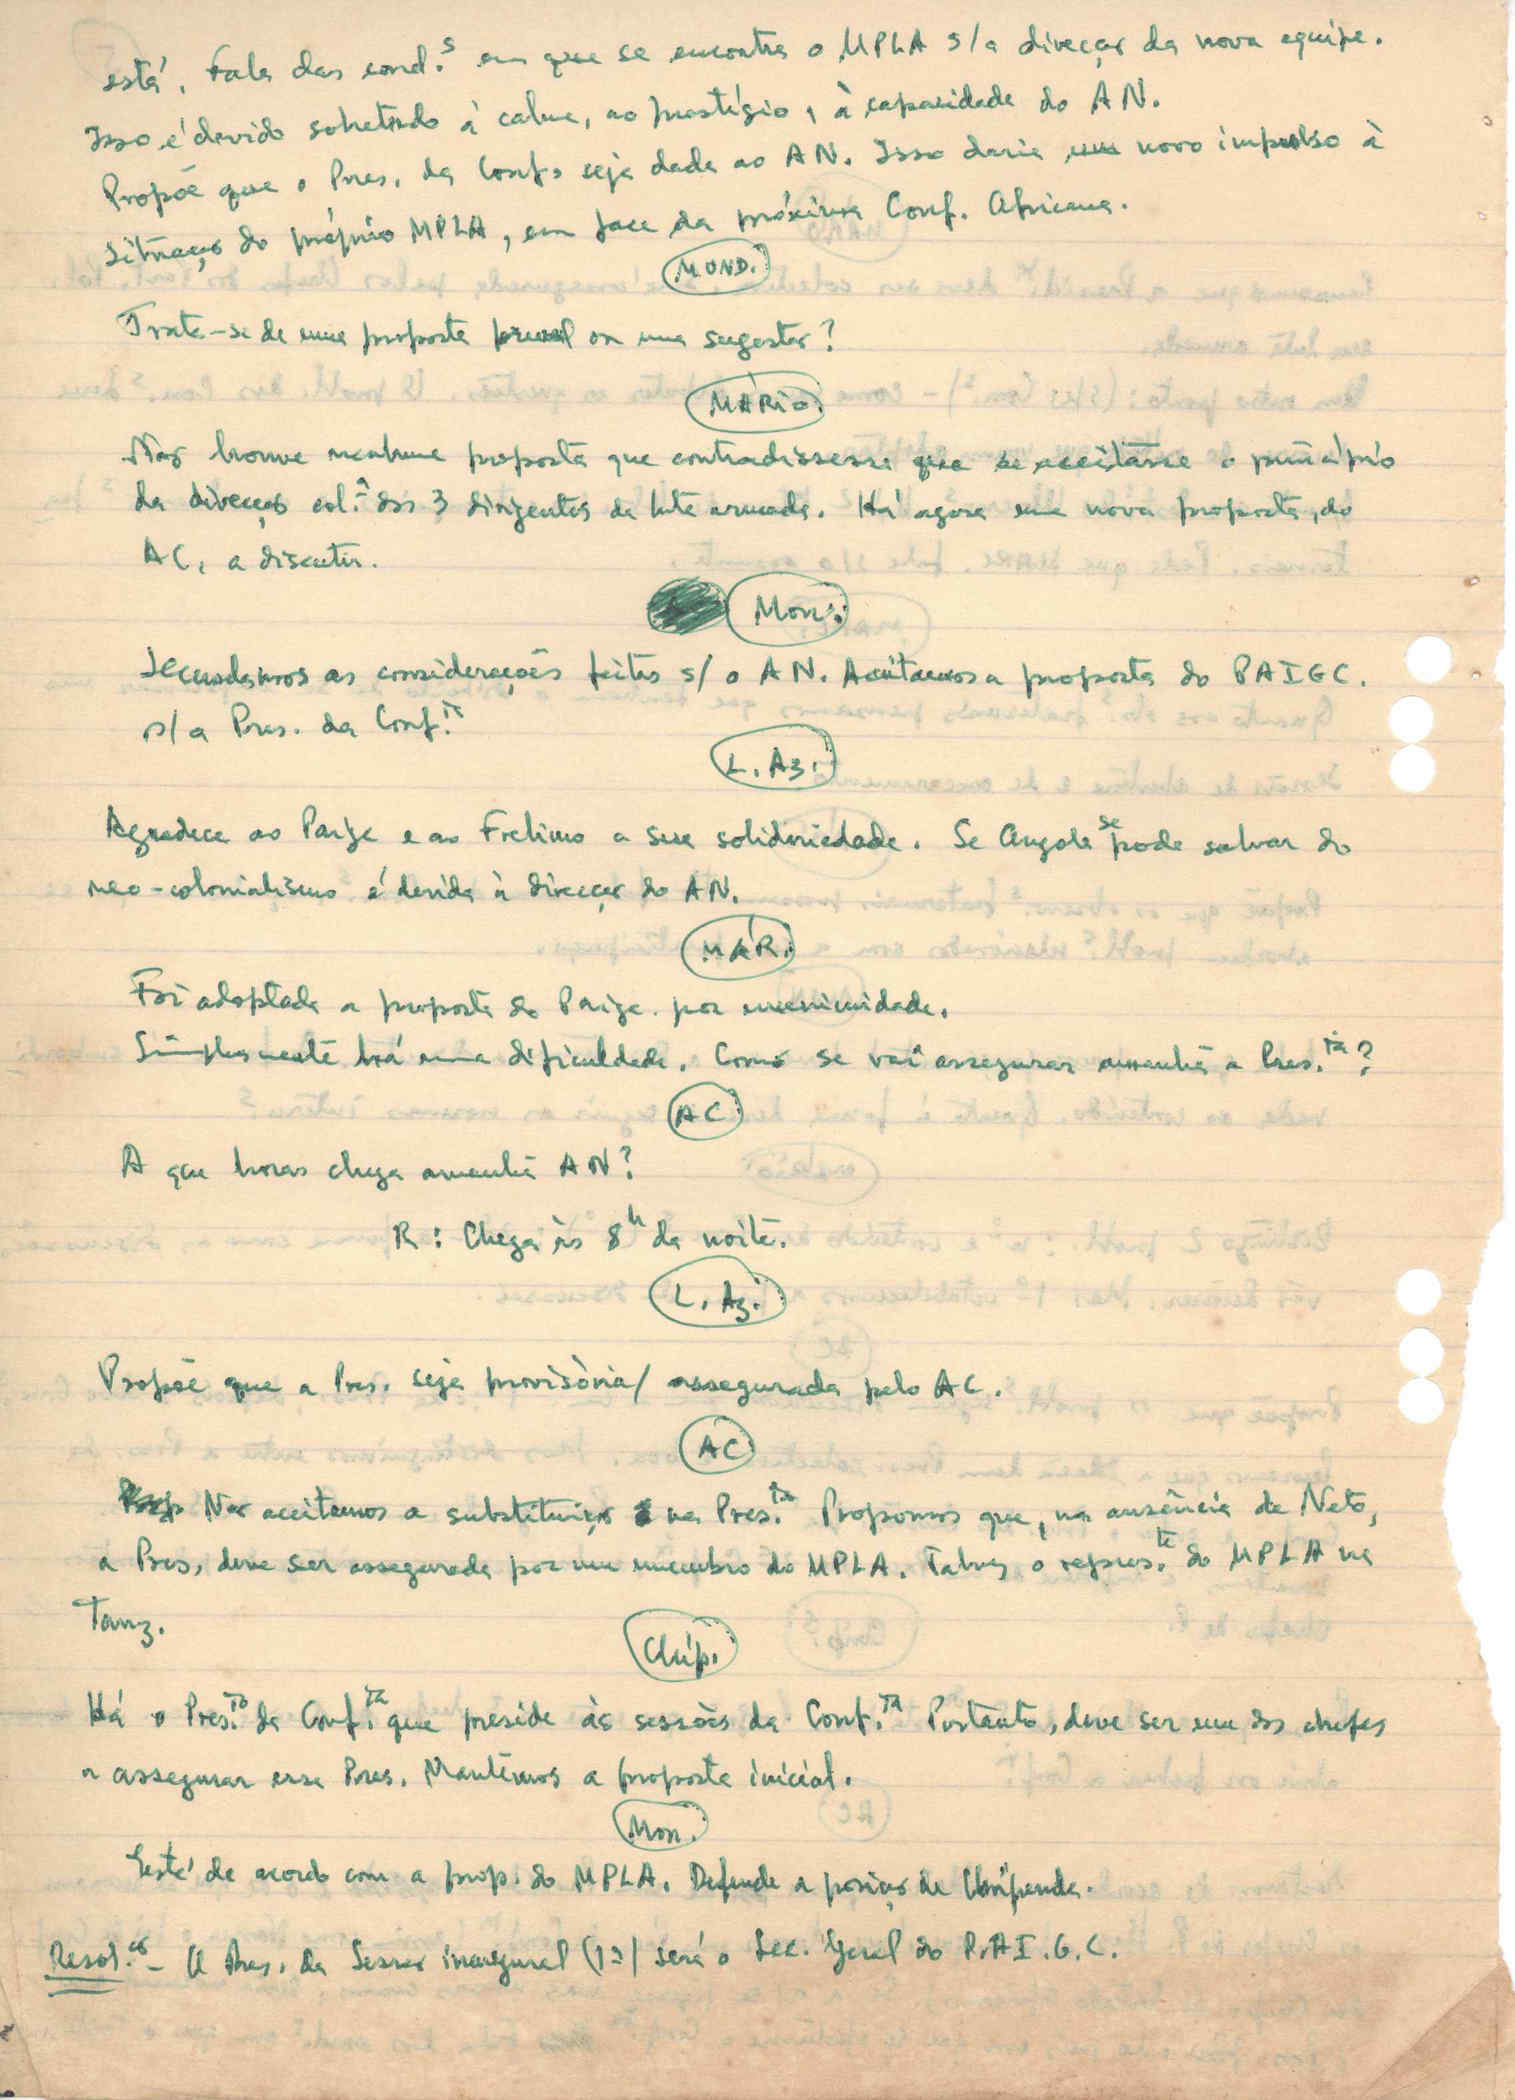 está. Fala das cond.s em que se encontra o MPLA s/a direcção da nova equipe.
Isso é devido sobretudo à calma, ao prestígio, à capacidade do AN.
Propõe que a Pres. da Conf. seja dada ao AN. Isso daria um novo impulso à
situação do próprio MPLA, em face da próxima Conf. Africana.
MOND.
Trata-se de uma proposta ou uma sugestão?
MÁRIO
Não houve nenhuma proposta que contradissesse que se aceitasse o princípio
da direcção col.ª dos 3 dirigentes da luta armada. Há agora uma nova proposta, do
AC, a discutir.
Mon.
Secundamos as considerações feitas s/ o AN. Aceitamos a proposta do PAIGC.
s/ a Pres. da Conf.ia
L. Az.
Agradece ao Paigc e ao Frelimo a sua solidariedade. Se Angola se pode salvar do
neo-colonialismo é devido à direcção do AN.
MÁR.
Foi adoptada a proposta do Paigc por unanimidade.
Simplesmente há uma dificuldade. Como se vai assegurar amanhã a Pres.ia?
AC
A que horas chega amanhã AN?
R: Chega às 8h da noite.
L. Az.
Propõe que a Pres. seja provisòria/ assegurada pelo AC.
AC
Não aceitamos a substituição na Pres.ia Propomos que, na ausência de Neto,
a Pres. deve ser assegurada por um membro do MPLA. Talvez o repres.te do MPLA na
Tanz.
Chip.
Há o Pres.te da Conf.ia que preside às sessões da Conf.ia Portanto, deve ser um dos chefes
a assegurar essa Pres. Mantemos a proposta inicial.
Mon.
Está de acordo com a prop. do MPLA. Defende a posição de Chipenda.
Resol.ão - A Pres. da Sessão inaugural (1ª) será o Sec. Geral do P.A.I.G.C.